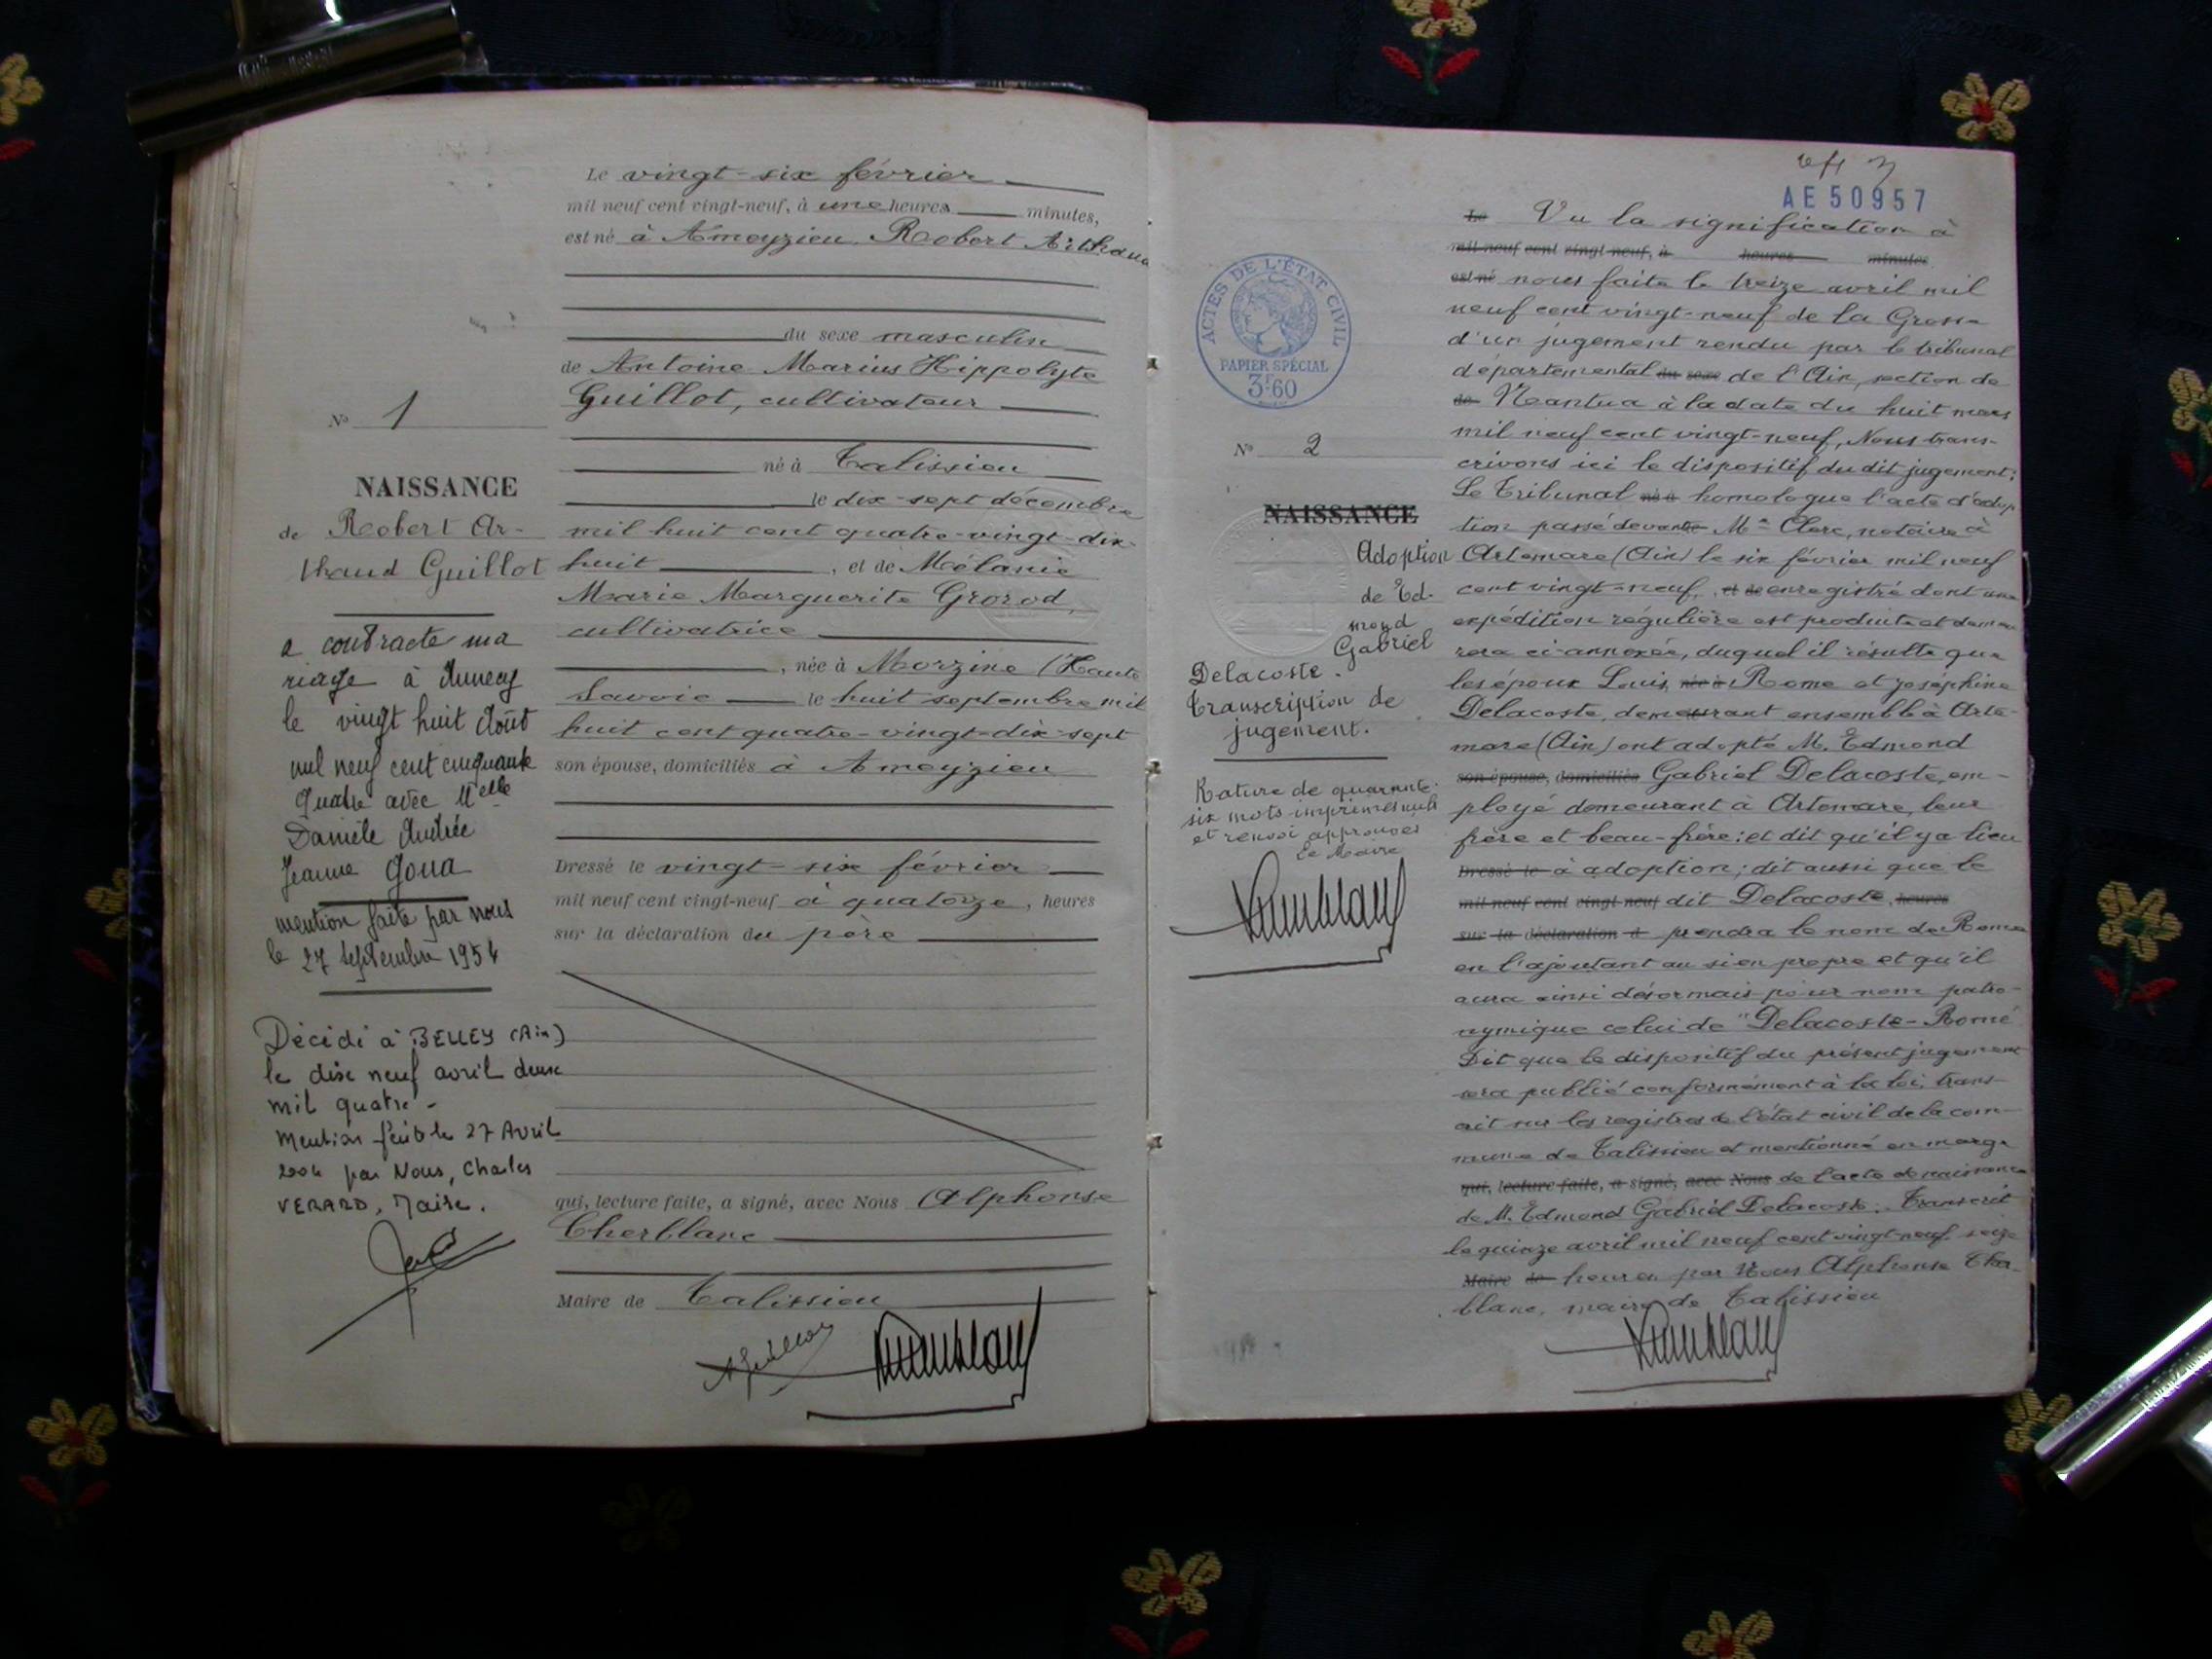 Le vingt-six février
mil neuf cent vingt-neuf, à une heures minutes,
est né à Ameyzieu, Robert Arthaud
du sexe masculin
de Antoine Marius Hippolyte
Guillot, cultivateur
né à Talissieu
le dix-sept décembre
mil huit cent quatre-vingt-dix-
huit, et de Mélanie
Marie Marguerite Grorod,
cultivatrice
, née à Morzine (Haute
Savoie le huit septembre mil
huit cent quatre-vingt-dix-sept
son épouse, domiciliés à Ameyzieu
Dressé le vingt-six février
mil neuf cent vingt-neuf à quatorze, heures
sur la déclaration du père
qui, lecture faite, a signé, avec Nous Alphonse
Cherblanc
Maire de Talissieu
N° 1
NAISSANCE
de Robert Ar-
thaud Guillot
a contracté ma
riage à Annecy
le vingt huit Août
mil neuf cent cinquante
quatre avec Melle
Danièle Andrée
Jeanne Goua
mention faite par nous
le 27 septembre 1954
Décédé à BELLEY (Ain)
le dix neuf avril deux
mil quatre -
Mention faite le 27 Avril
2004 par Nous, Charles
VERARD, Maire.
AE 50957
ACTES DE L'ÉTAT CIVIL
PAPIER SPÉCIAL
3F60
N° 2
NAISSANCE
Adoption
de Ed-
mond
Gabriel
Delacoste.
Transcription de
jugement.
Rature de quarante-
six mots imprimés nuls
et renvoi approuvés
Le Maire
Le Vu la signification à
mil neuf cent vingt-neuf, à heures minutes
est né nous faite le treize avril mil
neuf cent vingt-neuf de la Grosse
d'un jugement rendu par le tribunal
départemental du sexe de l'Ain, section de
de Nantua à la date du huit mars
mil neuf cent vingt-neuf, Nous trans-
crivons ici le dispositif du dit jugement:
Le Tribunal né à homologue l'acte d'adop
tion passé devant Me Clerc, notaire à
Artemare (Ain) le six février mil neuf
cent vingt-neuf, et de enregistré dont une
expédition régulière est produite et demeu
rera ci-annexée, duquel il résulte que
les époux Louis, née à Rome et Joséphine
Delacoste, demeurant ensemble à Arte-
mare (Ain) ont adopté M. Edmond
son épouse, domiciliés Gabriel Delacoste, em-
ployé demeurant à Artemare, leur
frère et beau-frère; et dit qu'il y a lieu
Dressé le à adoption; dit aussi que le
mil neuf cent vingt-neuf dit Delacoste, heures
sur la déclaration d prendra le nom de Rome
en l'ajoutant au sien propre et qu'il
aura ainsi désormais pour nom patro-
nymique celui de "Delacoste-Rome
Dit que le dispositif du présent jugement
sera publié conformément à la loi, trans-
crit sur les registres de l'état civil de la com-
mune de Talissieu et mentionné en marge
qui, lecture faite, a signé, avec Nous de l'acte de naissance
de M. Edmond Gabriel Delacoste. Transcrit
le quinze avril mil neuf cent vingt-neuf seize
Maire de heures par Nous Alphonse Cher-
blanc, maire de Talissieu